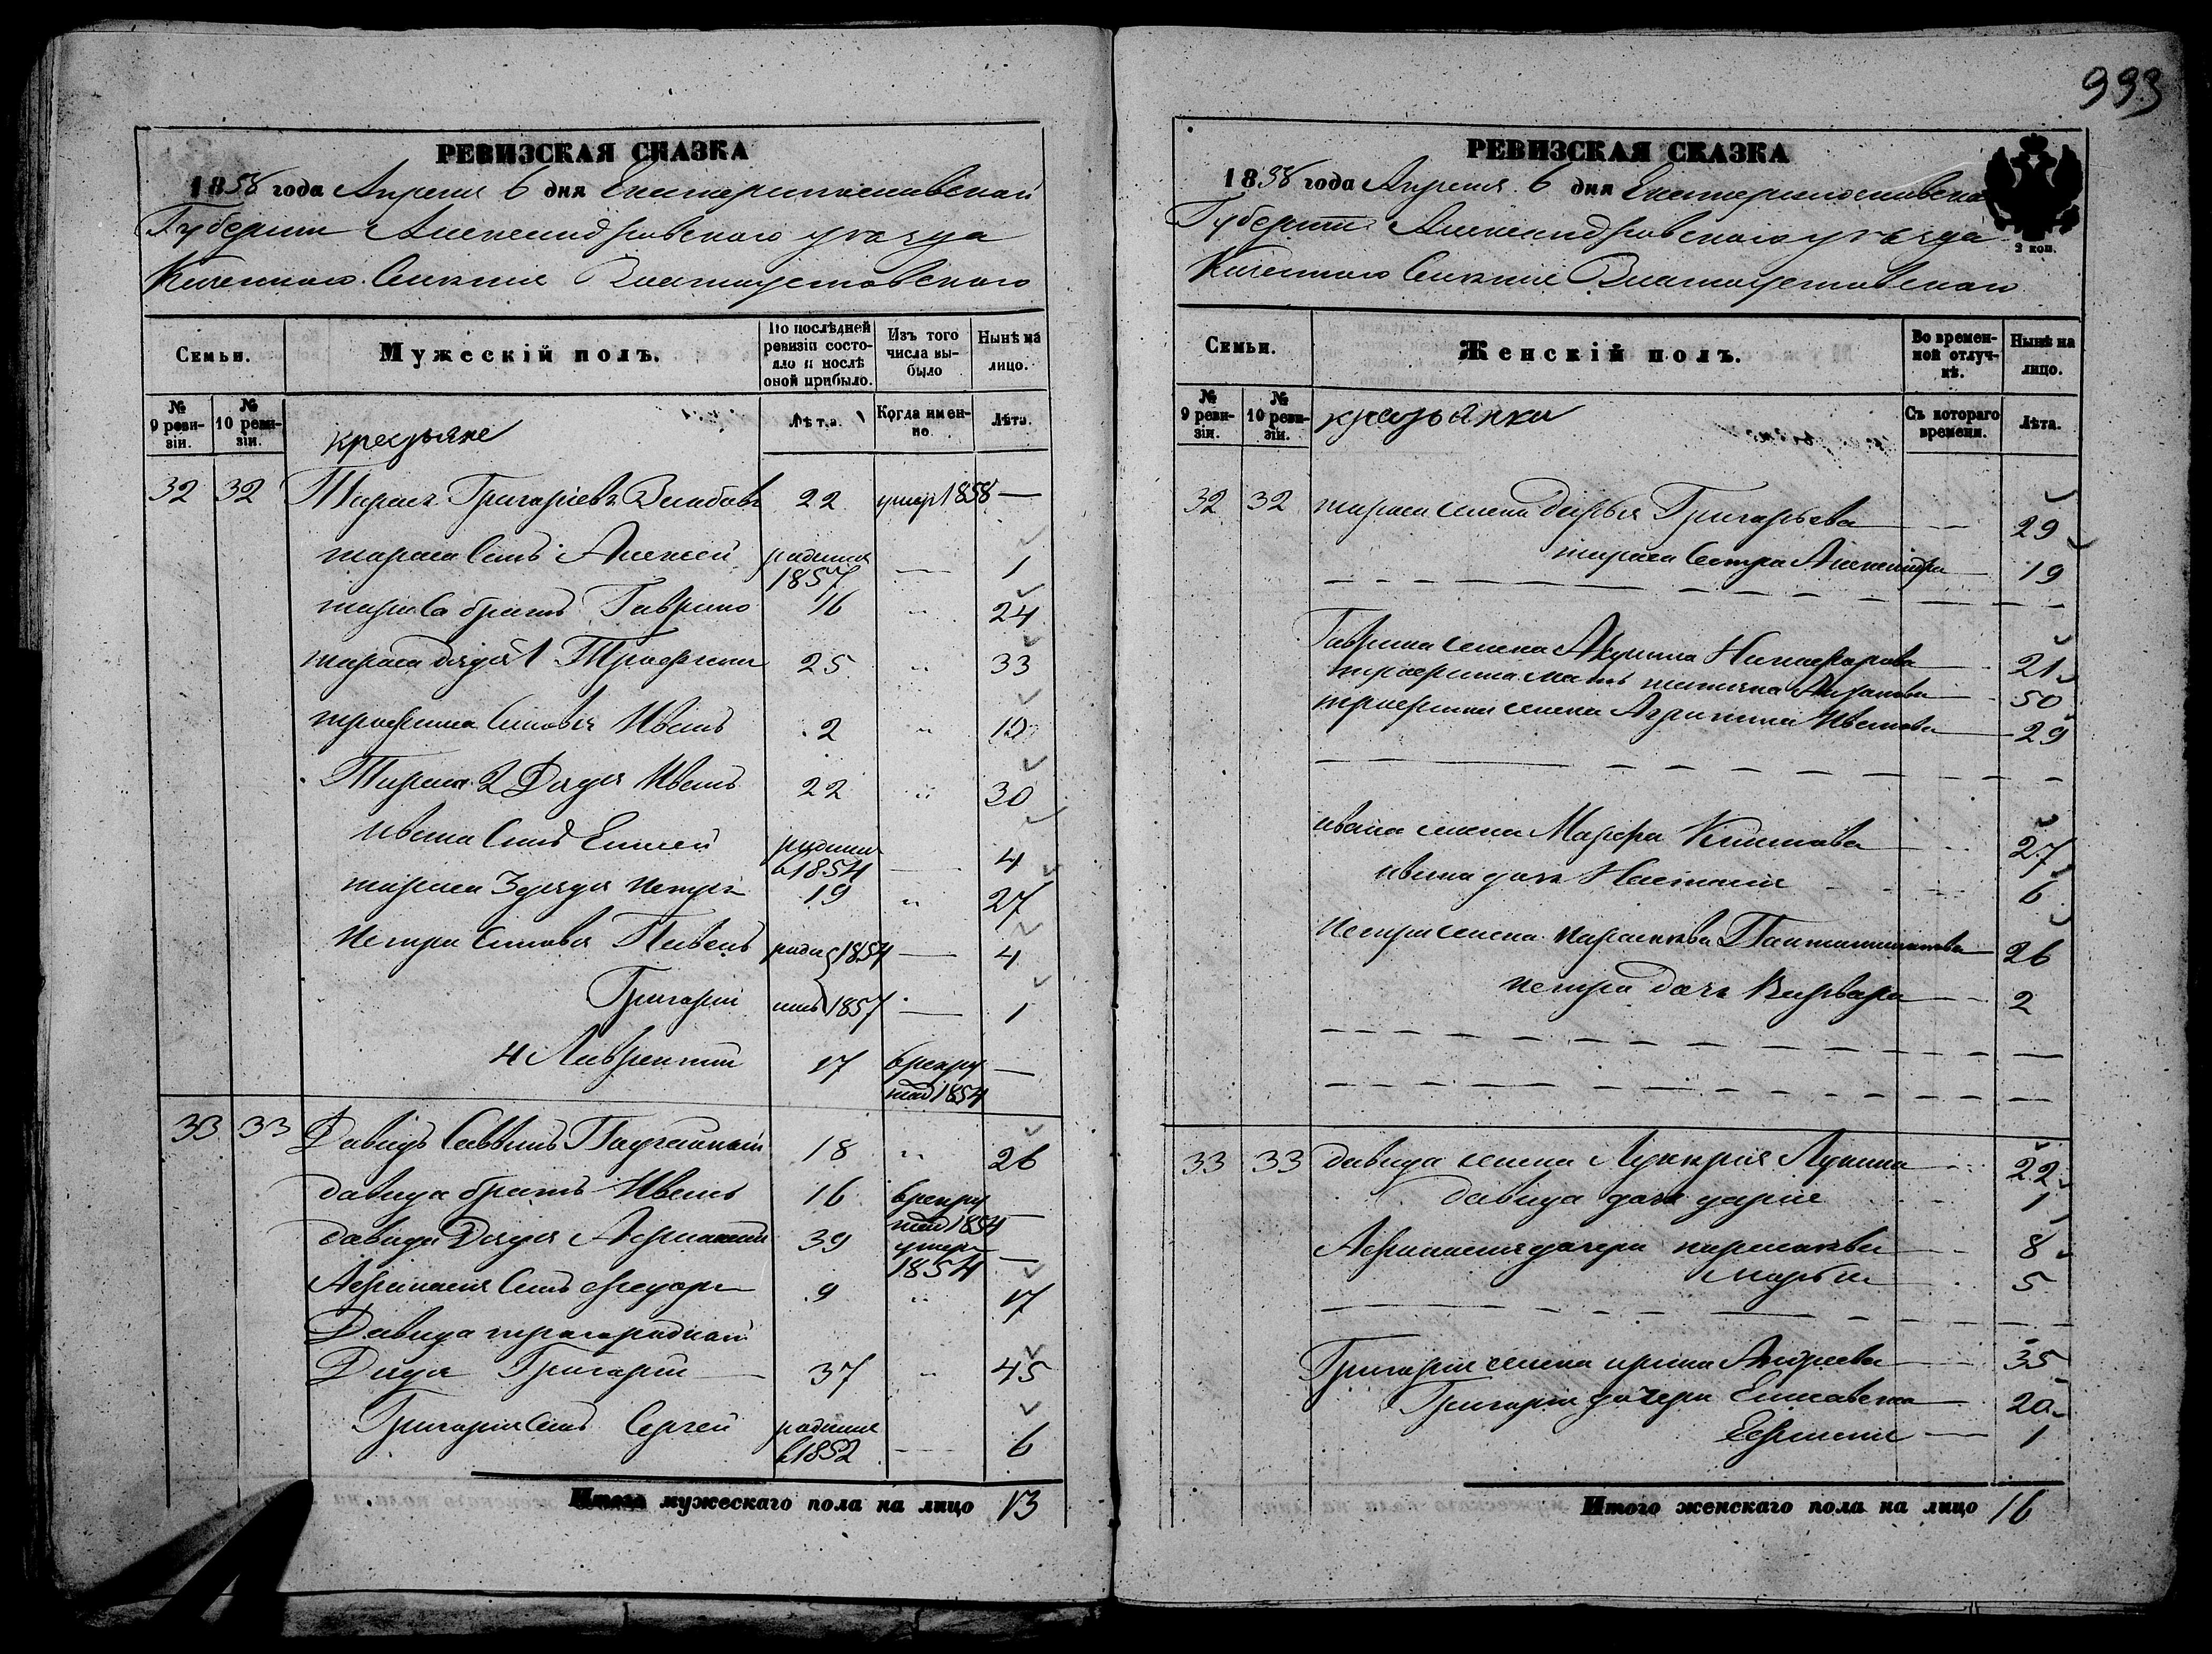 РЕВИЗСКАЯ СКАЗКА
1858 года Апреля 6 дня Екатеринославской
Губернии Александровского уезда
Златоустовского
Семьи.
Мужескій полъ.
По послѣдней ревизіи состояло и послѣ оной прибыло.
Изъ того числа выбыло
Нынѣ на лицо.
№ 9 ревизіи.
№ 10 ревизіи.
крестьяне
Лѣта.
Когда именно
Лѣта.
32 32 Тарасъ Григорьевъ 22 умер 1858 —
тараса Сынъ Алексей родился 1857 — 1
тараса братъ Гаврило 16 " 24
тараса дядя 1 Трофимъ 25 " 33
трофима Сыновья Иванъ 2 " 10
Тараса 2 Дядя Иванъ 22 " 30
ивана Сынъ Елисей родился в 1854 — 4
тараса 3 дядя петръ 19 " 27
петра Сыновья Павелъ роди 1854 — 4
Григорий лись 1857 — 1
4 Лаврентий 17 в рекруты 1854 —
33 33 Давидъ Саввинъ 18 " 26
давида братъ Иванъ 16 в рекруты 1854 —
давида Дядя Афанасий 39 умер 1854 —
Афанасия Сынъ Федоръ 9 " 17
Давида троюродной
Дядя Григорий 37 " 45
Григория Сынъ Сергей родился в 1852 — 6
Итого мужескаго пола на лицо 13
993
РЕВИЗСКАЯ СКАЗКА
1858 года Апреля 6 дня Екатеринославской
2 коп.
Губернии Александровского уезда
Златоустовского
Семьи.
Женскій полъ.
Во временной отлучкѣ.
Нынѣ на лицо.
№ 9 ревизіи.
№ 10 ревизіи.
крестьянки
Съ котораго времени.
Лѣта.
32 32 тараса жена дарья Григорьева 29
тараса Сестра Александра 19
Гаврила жена Акулина Никифорова 21
трофима мать татьяна 50
трофима жена Агрипина Иванова 29
ивана жена Марфа 27
ивана дочь Наталия 6
петра жена парасковья 26
петра дочь Варвара 2
33 33 давида жена Лукерья Лукина 22
давида дочь дарья 1
Афанасия дочери парасковья 8
марья 5
Григория жена ирина Андреева 35
Григория дочери Елисавета 20
Евфимия 1
Итого женскаго пола на лицо 16